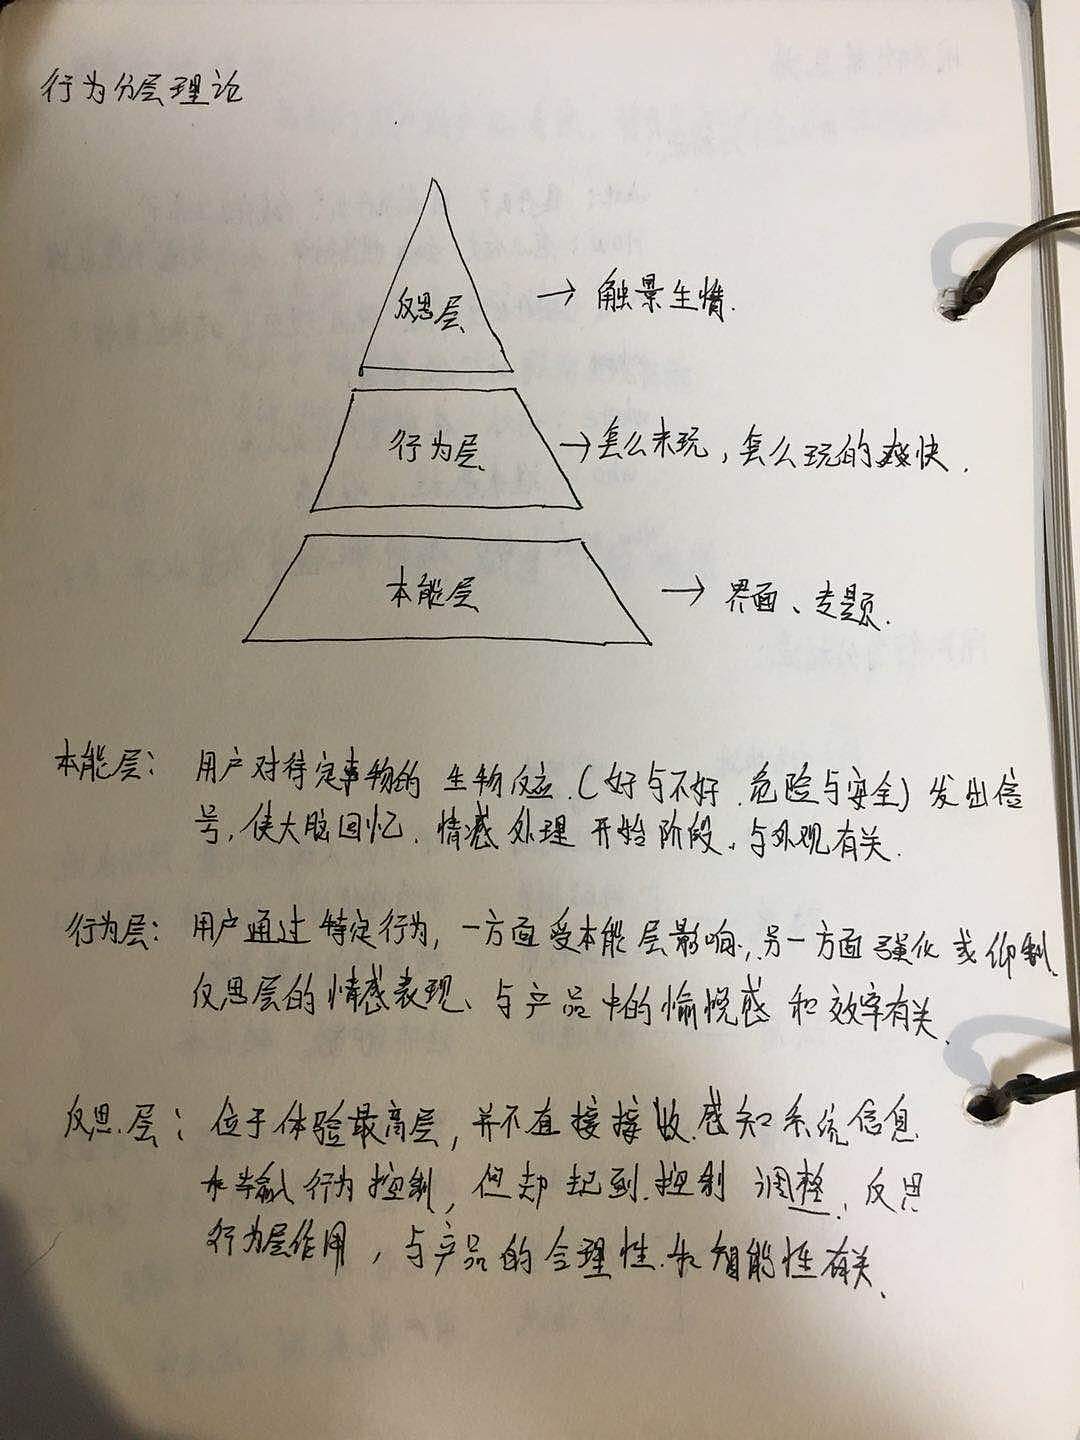 行为分层理论
反思层 → 触景生情.
行为层 → 怎么来玩，怎么玩的爽快.
本能层 → 界面、专题页.
本能层： 用户对待定事物的 生物反应.(好与不好.危险与安全) 发出信
号，使大脑回忆.情感处理 开始阶段.与外观有关.
行为层： 用户通过特定行为，一方面受本能层影响，另一方面强化或抑制
反思层的情感表现、与产品中的愉悦感和效率有关.
反思层： 位于体验最高层，并不直接接收感知系统信息
和 行为控制，但却起到.控制 调整、反思
行为层作用，与产品的合理性.和智能性有关.